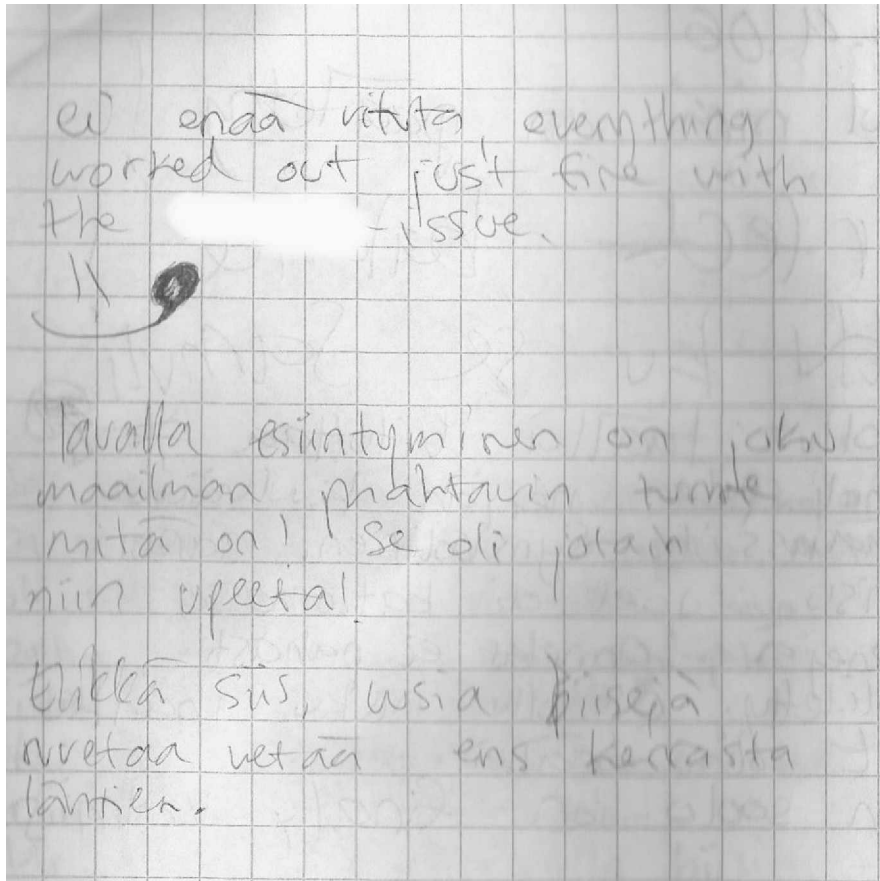 ei enää vituta, everything
worked out just fine with
the -issue.
lavalla esiintyminen on joku
maailman mahtavin tunne
mitä on! Se oli jotain
niin upeeta!
Elikkä siis, uusia biisejä
ruvetaa vetää ens kerrasta
lähtien.